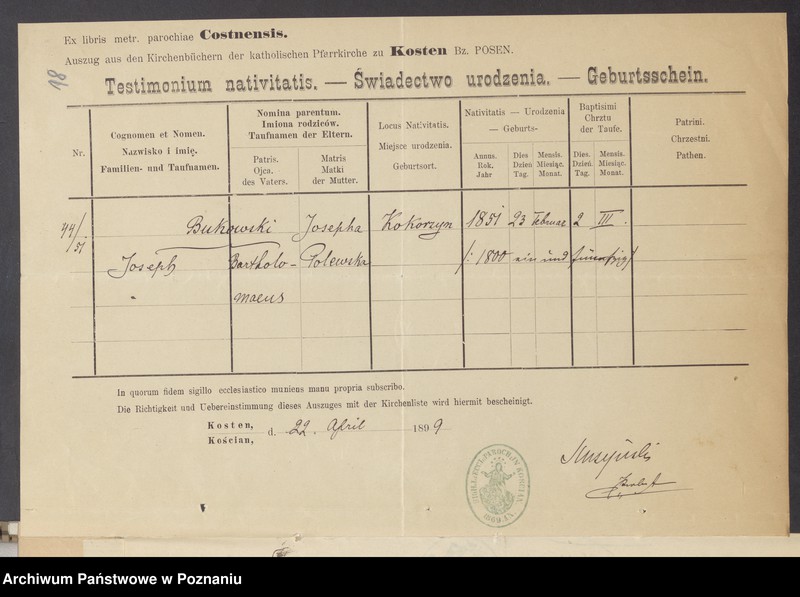 Ex libris metr. parochiae Costnensis.
Auszug aus den Kirchenbüchern der katholischen Pfarrkirche zu Kosten Bz. POSEN.
18
Testimonium nativitatis. — Świadectwo urodzenia. — Geburtsschein.
Nr.
Cognomen et Nomen.
Nazwisko i imię.
Familien- und Taufnamen.
Nomina parentum.
Imiona rodziców.
Taufnamen der Eltern.
Patris.
Ojca.
des Vaters.
Matris
Matki
der Mutter.
Locus Nativitatis.
Miejsce urodzenia.
Geburtsort.
Nativitatis — Urodzenia
— Geburts-
Annus.
Rok.
Jahr
Dies
Dzień
Tag.
Mensis.
Miesiąc.
Monat.
Baptisimi
Chrztu
der Taufe.
Dies.
Dzień.
Tag.
Mensis.
Miesiąc.
Monat.
Patrini.
Chrzestni.
Pathen.
44/51 Bukowski Josepha Kokorzyn 1851 23 Februar 2 III.
Joseph Bartholo- Polewska /: 1800 ein und fünfzig /
maeus
In quorum fidem sigillo ecclesiastico muniens manu propria subscribo.
Die Richtigkeit und Uebereinstimmung dieses Auszuges mit der Kirchenliste wird hiermit bescheinigt.
Kosten,
Kościan,
d. 22. April 1899
Archiwum Państwowe w Poznaniu